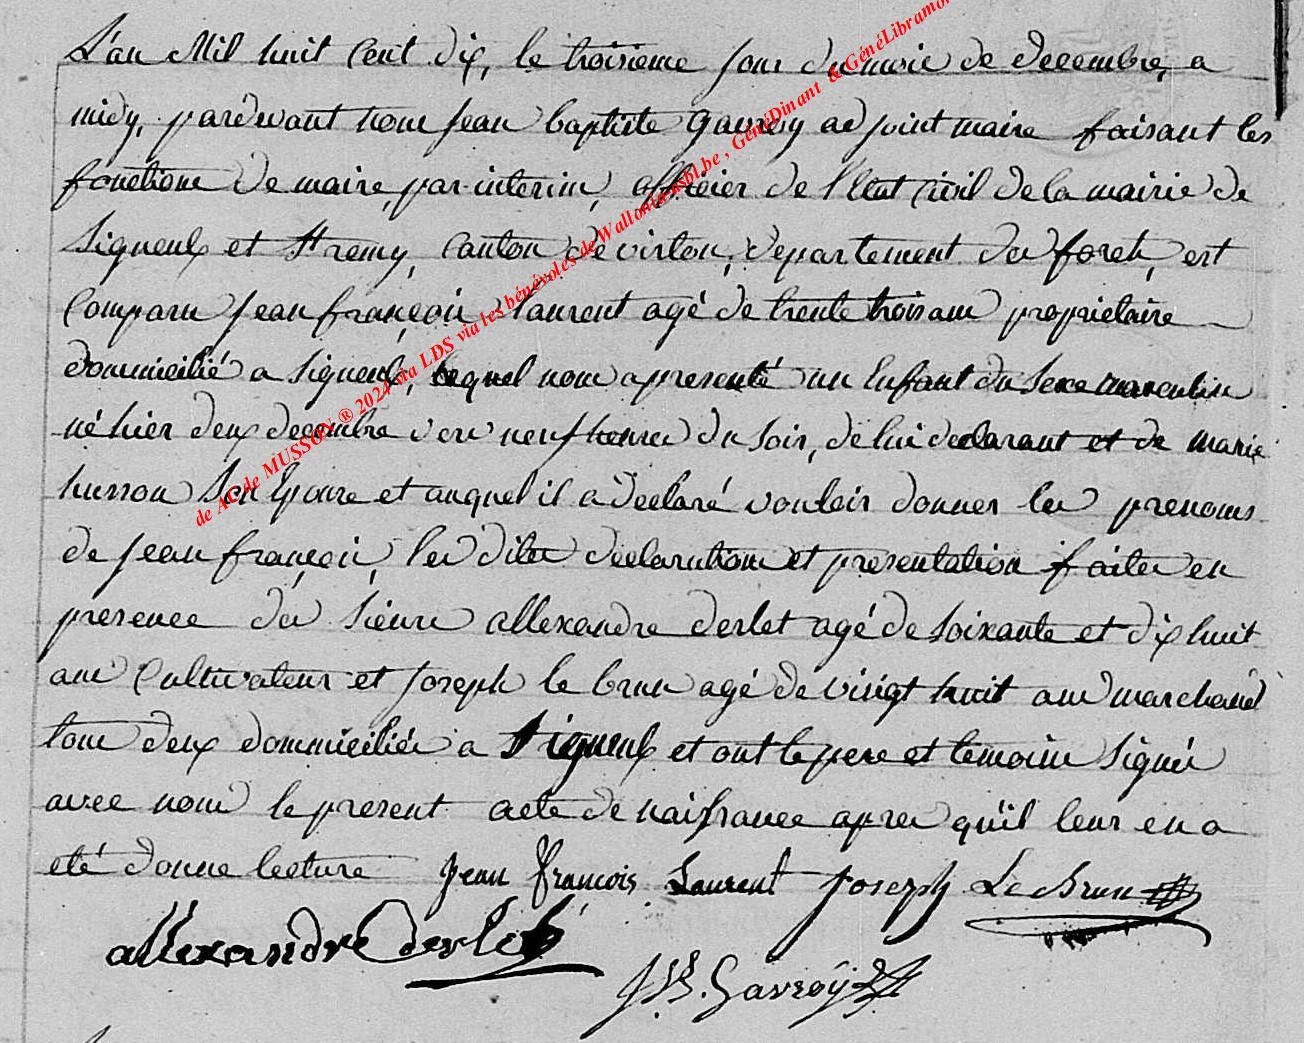 L'an Mil huit Cent dix, le troisieme jour du mois de decembre, a
midy, pardevant nous jean baptiste gavroy adjoint maire faisant les
fonctions de maire par interim, officier de l'Etat Civil de la mairie de
Signeulx et St remy, Canton de virton, departement des forets, est
Comparu jean françois laurent agé de trente trois ans proprietaire
dommicilié a Signeulx, lequel nous a presenté un Enfant du Sexe masculin
né hier deux decembre vers neuf heures du soir, de lui declarant et de marie
husson Son Epouse et auquel il a declaré vouloir donner les prenoms
de jean françois, les dites declarations et presentation faites en
presence des Sieurs allexandre derlet agé de soixante et dix huit
ans Cultivateur et joseph le brun agé de vingt huit ans marchand
tous deux dommiciliés a Signeulx et ont le pere et temoins Signés
avec nous le present acte de naissance apres qu'il leur en a
eté donné lecture jean françois Laurent joseph Le Brun
allexandre derlet
JB. Gavroÿ
de AC de MUSSON ® 2024 via LDS via les bénévoles de Wallonia asbl.be , GénéDinant & GénéLibramon